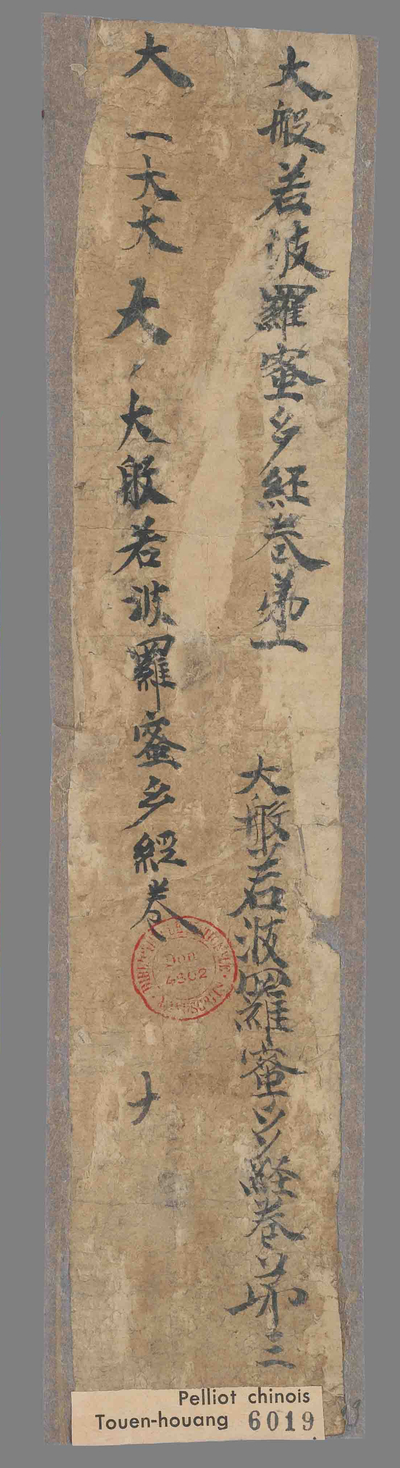 大般若波羅蜜多經卷第一
大般若波羅蜜多經卷第三
大 一大大 大 大般若波羅蜜多經卷
Pelliot chinois
Touen-houang 6019